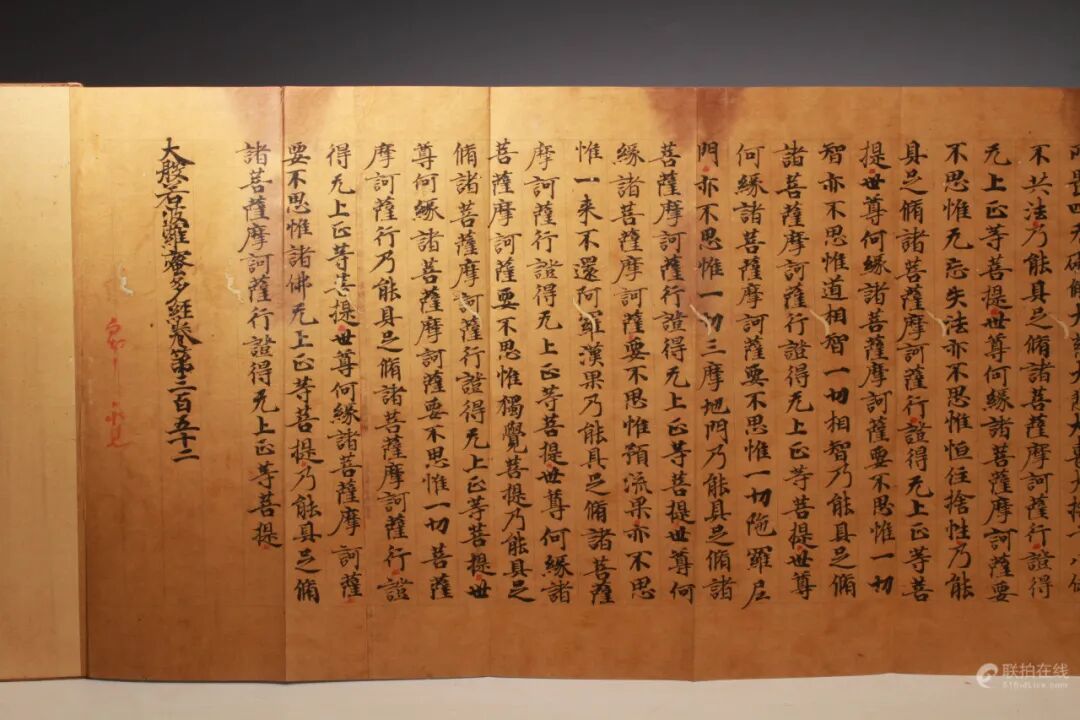 四无礙解大慈大悲大喜大捨十八佛
不共法乃能具足脩諸菩薩摩訶薩行證得
无上正等菩提世尊何緣諸菩薩摩訶薩要
不思惟无忘失法亦不思惟恒住捨性乃能
具足脩諸菩薩摩訶薩行證得无上正等菩
提世尊何緣諸菩薩摩訶薩要不思惟一切
智亦不思惟道相智一切相智乃能具足脩
諸菩薩摩訶薩行證得无上正等菩提世尊
何緣諸菩薩摩訶薩要不思惟一切陁羅尼
門亦不思惟一切三摩地門乃能具足脩諸
菩薩摩訶薩行證得无上正等菩提世尊何
緣諸菩薩摩訶薩要不思惟預流果亦不思
惟一来不還阿羅漢果乃能具足脩諸菩薩
摩訶薩行證得无上正等菩提世尊何緣諸
菩薩摩訶薩要不思惟獨覺菩提乃能具足
脩諸菩薩摩訶薩行證得无上正等菩提世
尊何緣諸菩薩摩訶薩要不思惟一切菩薩
摩訶薩行乃能具足脩諸菩薩摩訶薩行證
得无上正等菩提世尊何緣諸菩薩摩訶薩
要不思惟諸佛无上正等菩提乃能具足脩
諸菩薩摩訶薩行證得无上正等菩提
大般若波羅蜜多經卷第三百五十二
联拍在线